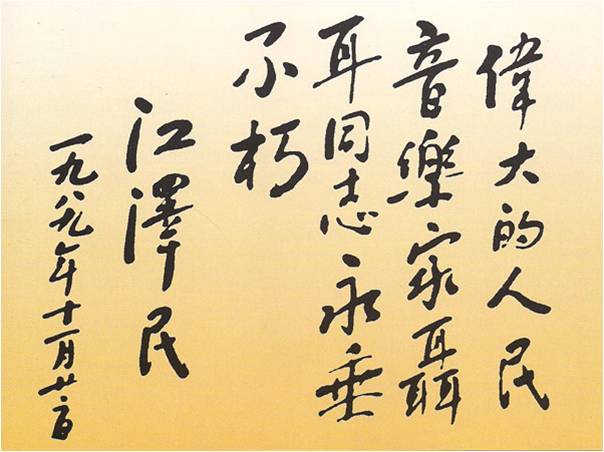 偉大的人民
音樂家聶
耳同志永垂
不朽
江澤民
一九八九年十一月廿二日